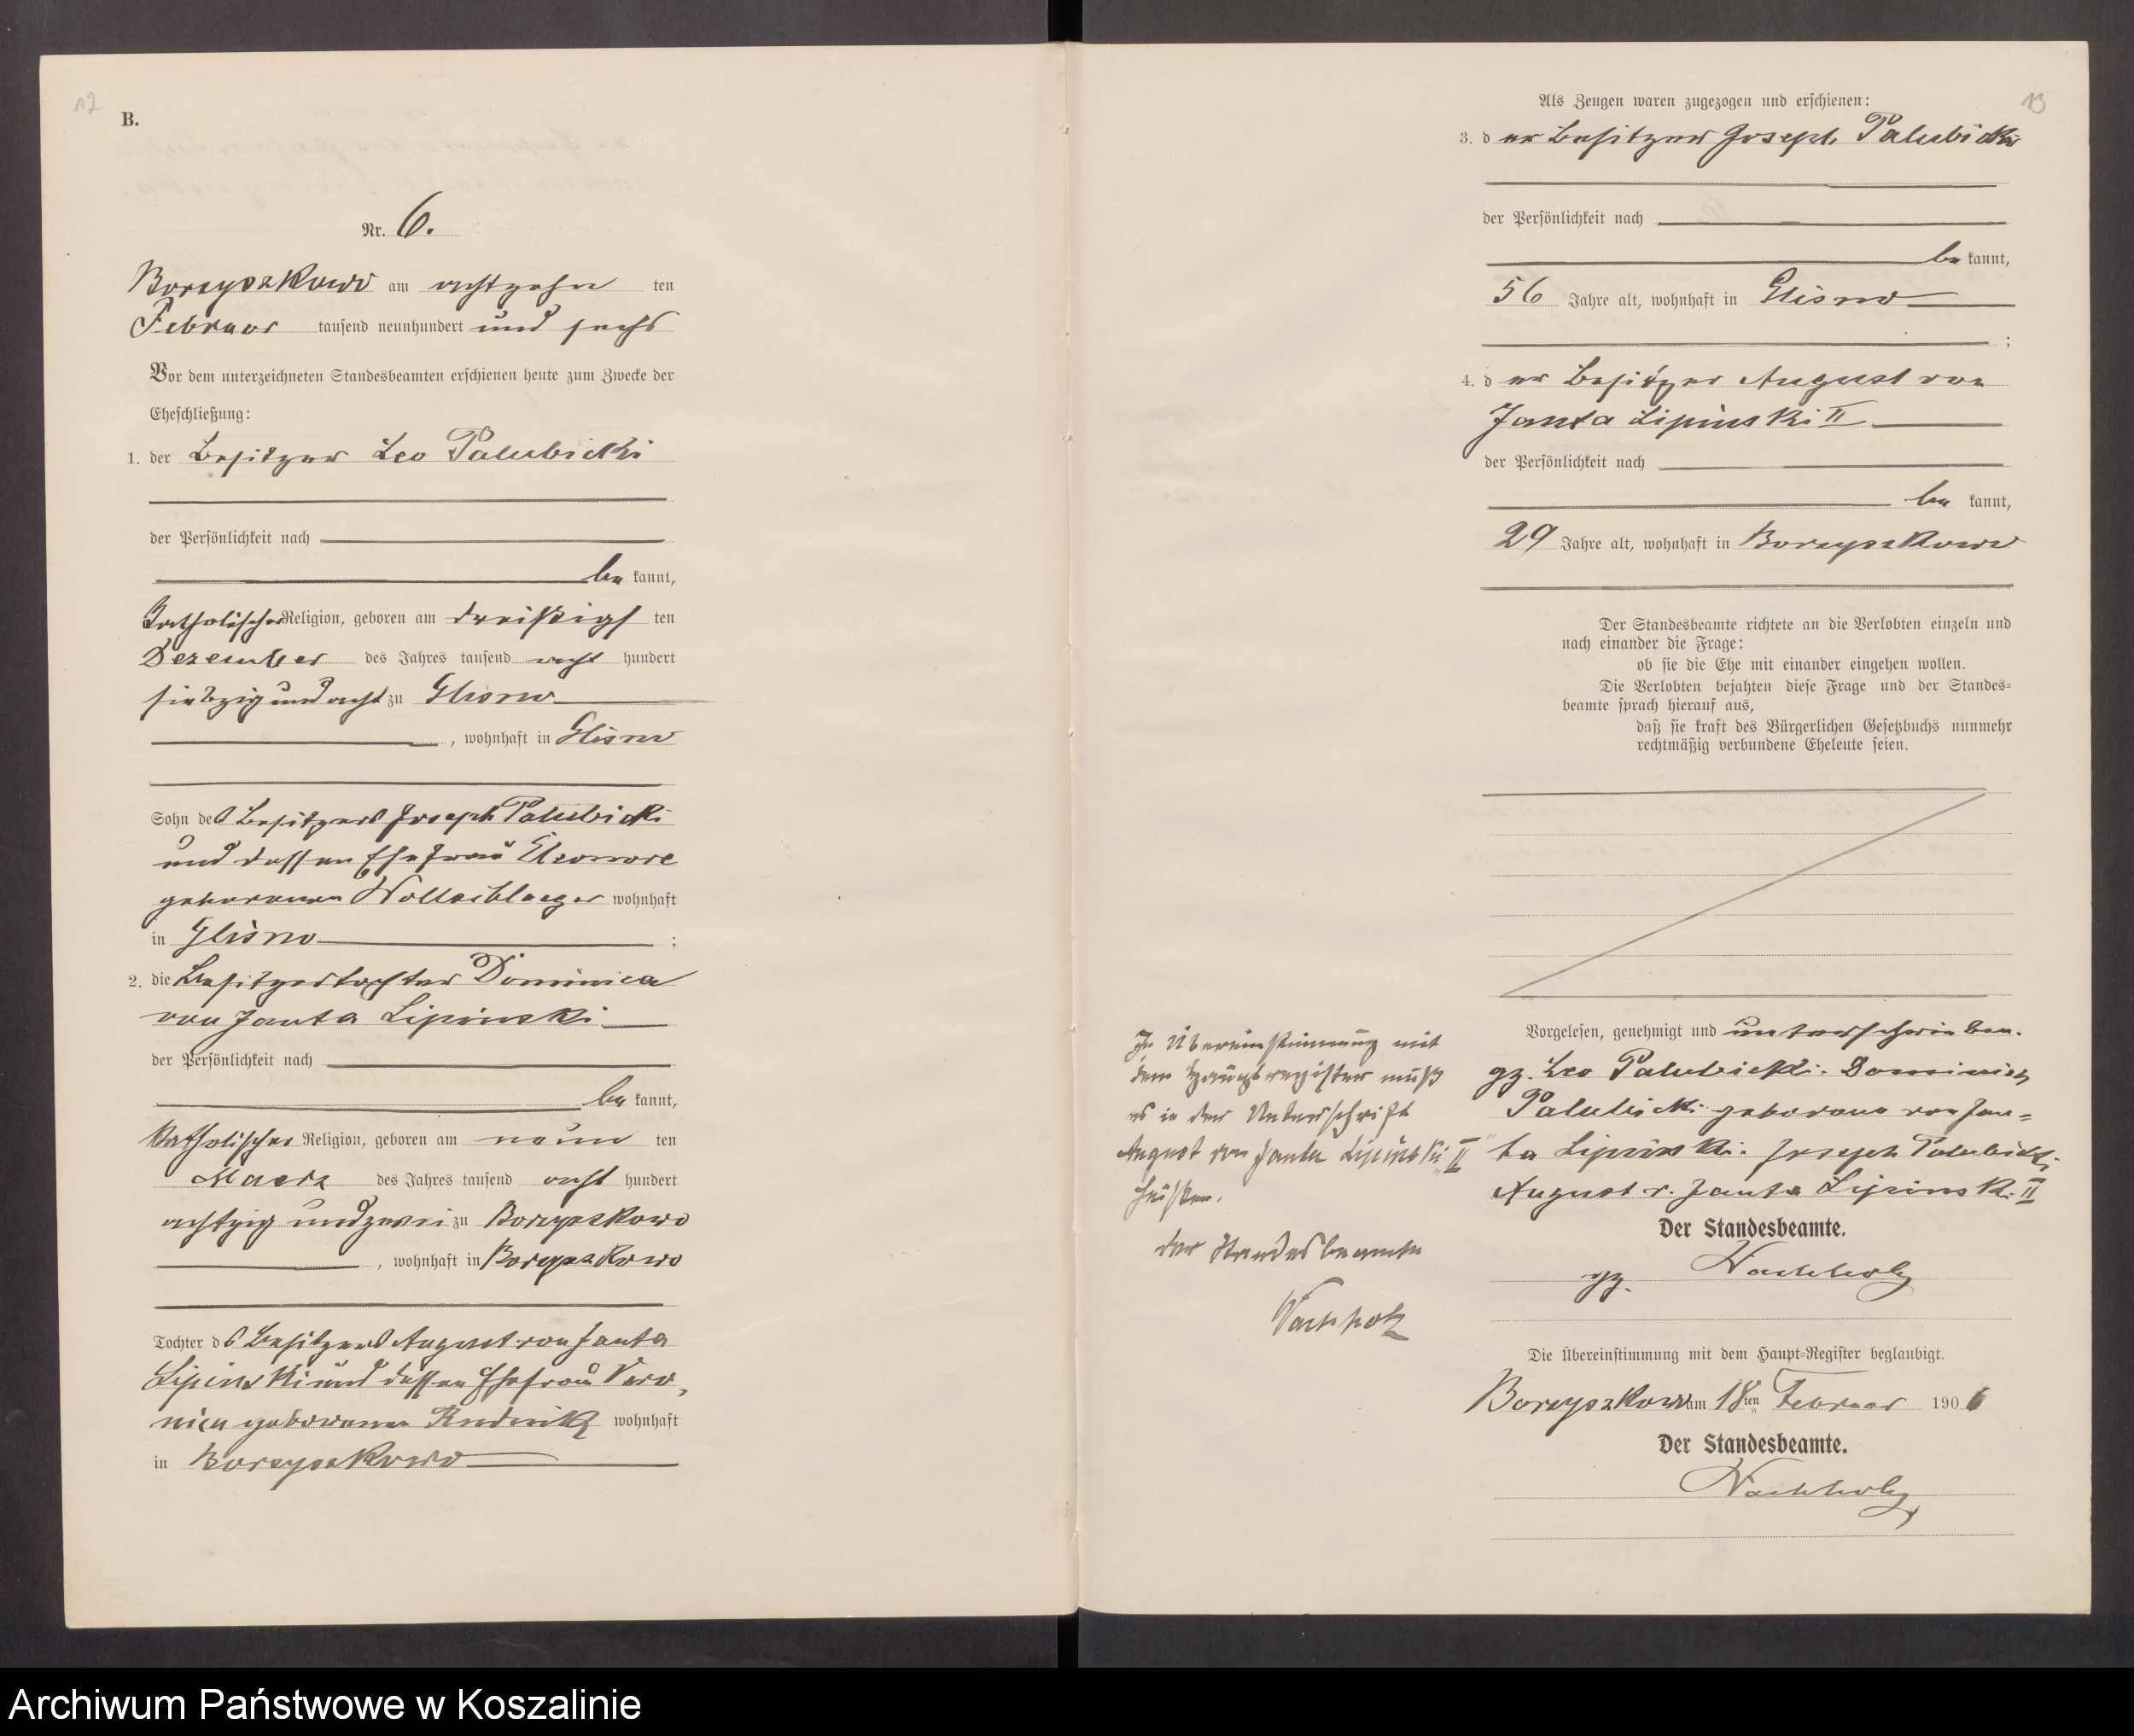 12
B.
Nr. 6.
Borzyszkowo am achtzehn ten
Februar tausend neunhundert und sechs
Vor dem unterzeichneten Standesbeamten erschienen heute zum Zwecke der
Eheschließung:
1. der Besitzer Leo Palubicki
der Persönlichkeit nach
be kannt,
Katholischer Religion, geboren am dreißigs ten
Dezember des Jahres tausend acht hundert
siebzig und acht zu Glisno
, wohnhaft in Glisno
Sohn des Besitzers Joseph Palubicki
und dessen Ehefrau Eleonore
geborenen Wollschlaeger wohnhaft
in Glisno ;
2. die Besitzertochter Dominica
von Janta Lipinski
der Persönlichkeit nach
be kannt,
Katholischer Religion, geboren am neun ten
Maerz des Jahres tausend acht hundert
achtzig und zwei zu Borzyszkowo
, wohnhaft in Borzyszkowo
Tochter des Besitzers August von Janta
Lipinski und dessen Ehefrau Vero-
nica geborenen Rudnik wohnhaft
in Borzyszkowo
13
Als Zeugen waren zugezogen und erschienen:
3. der Besitzer Joseph Palubicki
der Persönlichkeit nach
be kannt,
56 Jahre alt, wohnhaft in Glisno
;
4. der Besitzer August von
Janta Lipinski II
der Persönlichkeit nach
be kannt,
29 Jahre alt, wohnhaft in Borzyszkowo
Der Standesbeamte richtete an die Verlobten einzeln und
nach einander die Frage:
ob sie die Ehe mit einander eingehen wollen.
Die Verlobten bejahten diese Frage und der Standes-
beamte sprach hierauf aus,
daß sie kraft des Bürgerlichen Gesetzbuchs nunmehr
rechtmäßig verbundene Eheleute seien.
Vorgelesen, genehmigt und unterschrieben.
gz. Leo Palubicki. Dominica
Palubicki geborene von Jan-
ta Lipinski. Joseph Palubicki.
August v. Janta Lipinski II
Der Standesbeamte.
gz. Wachholz
In Übereinstimmung mit
dem Hauptregister muß
es in der Unterschrift
August von Janta Lipinski „II“
heißen.
der Standesbeamte
Wachholz
Die Übereinstimmung mit dem Haupt-Register beglaubigt.
Borzyszkowo am 18ten Februar 1906
Der Standesbeamte.
Wachholz
Archiwum Państwowe w Koszalinie